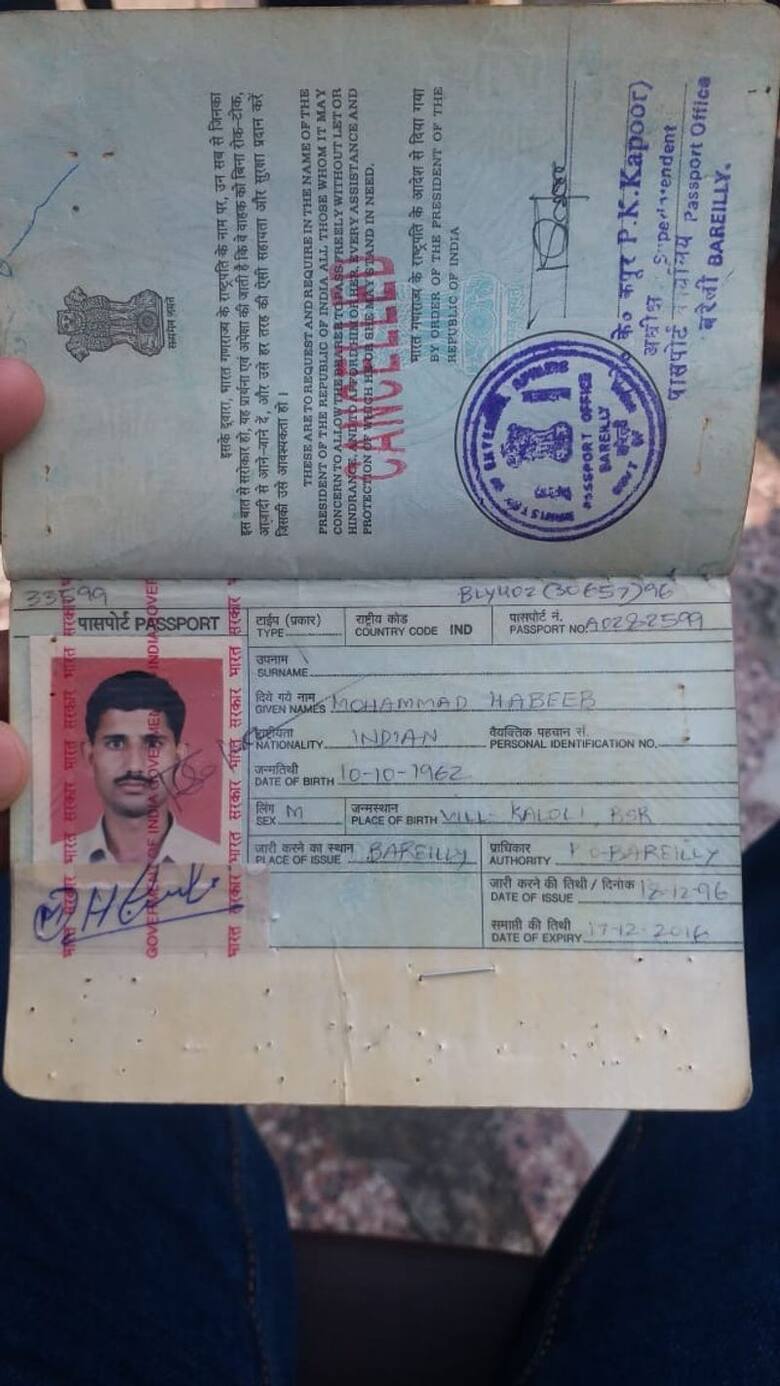 सत्यमेव जयते
इसके द्वारा, भारत गणराज्य के राष्ट्रपति के नाम पर, उन सब से जिनका
इस बात से सरोकार हो, यह प्रार्थना एवं अपेक्षा की जाती है कि वे वाहक को बिना रोक-टोक,
आज़ादी से आने-जाने दें, और उसे हर तरह की ऐसी सहायता और सुरक्षा प्रदान करें
जिसकी उसे आवश्यकता हो ।
THESE ARE TO REQUEST AND REQUIRE IN THE NAME OF THE
PRESIDENT OF THE REPUBLIC OF INDIA ALL THOSE WHOM IT MAY
CONCERN TO ALLOW THE BEARER TO PASS FREELY WITHOUT LET OR
HINDRANCE, AND TO AFFORD HIM OR HER, EVERY ASSISTANCE AND
PROTECTION OF WHICH HE OR SHE MAY STAND IN NEED.
CANCELLED
भारत गणराज्य के राष्ट्रपति के आदेश से दिया गया
BY ORDER OF THE PRESIDENT OF THE
REPUBLIC OF INDIA
PASSPORT OFFICE
BAREILLY
बरेली
के० कपूर P.K.Kapoor)
अधीक्षक
पासपोर्ट कार्यालय Passport Office
बरेली BAREILLY.
33599
BLY402(30657)96
पासपोर्ट PASSPORT
टाईप (प्रकार)
TYPE
राष्ट्रीय कोड
COUNTRY CODE IND
पासपोर्ट नं.
PASSPORT NO. A0282599
उपनाम
SURNAME
दिये गये नाम
GIVEN NAMES MOHAMMAD HABEEB
राष्ट्रीयता
NATIONALITY INDIAN
वैयक्तिक पहचान सं.
PERSONAL IDENTIFICATION NO.
जन्मतिथी
DATE OF BIRTH 10-10-1962
लिंग
SEX M
जन्मस्थान
PLACE OF BIRTH VILL- KALOLI, BSR
जारी करने का स्थान
PLACE OF ISSUE BAREILLY
प्राधिकार
AUTHORITY P O-BAREILLY
जारी करने की तिथी / दिनांक
DATE OF ISSUE 18-12-96
समाप्ती की तिथी
DATE OF EXPIRY 17-12-2016
भारत सरकार भारत सरकार भारत सरकार भारत सरकार
GOVERNMENT OF INDIA GOVERNMENT OF INDIA GOVERN
भारत सरकार भारत सरकार भारत सरकार भारत सरकार